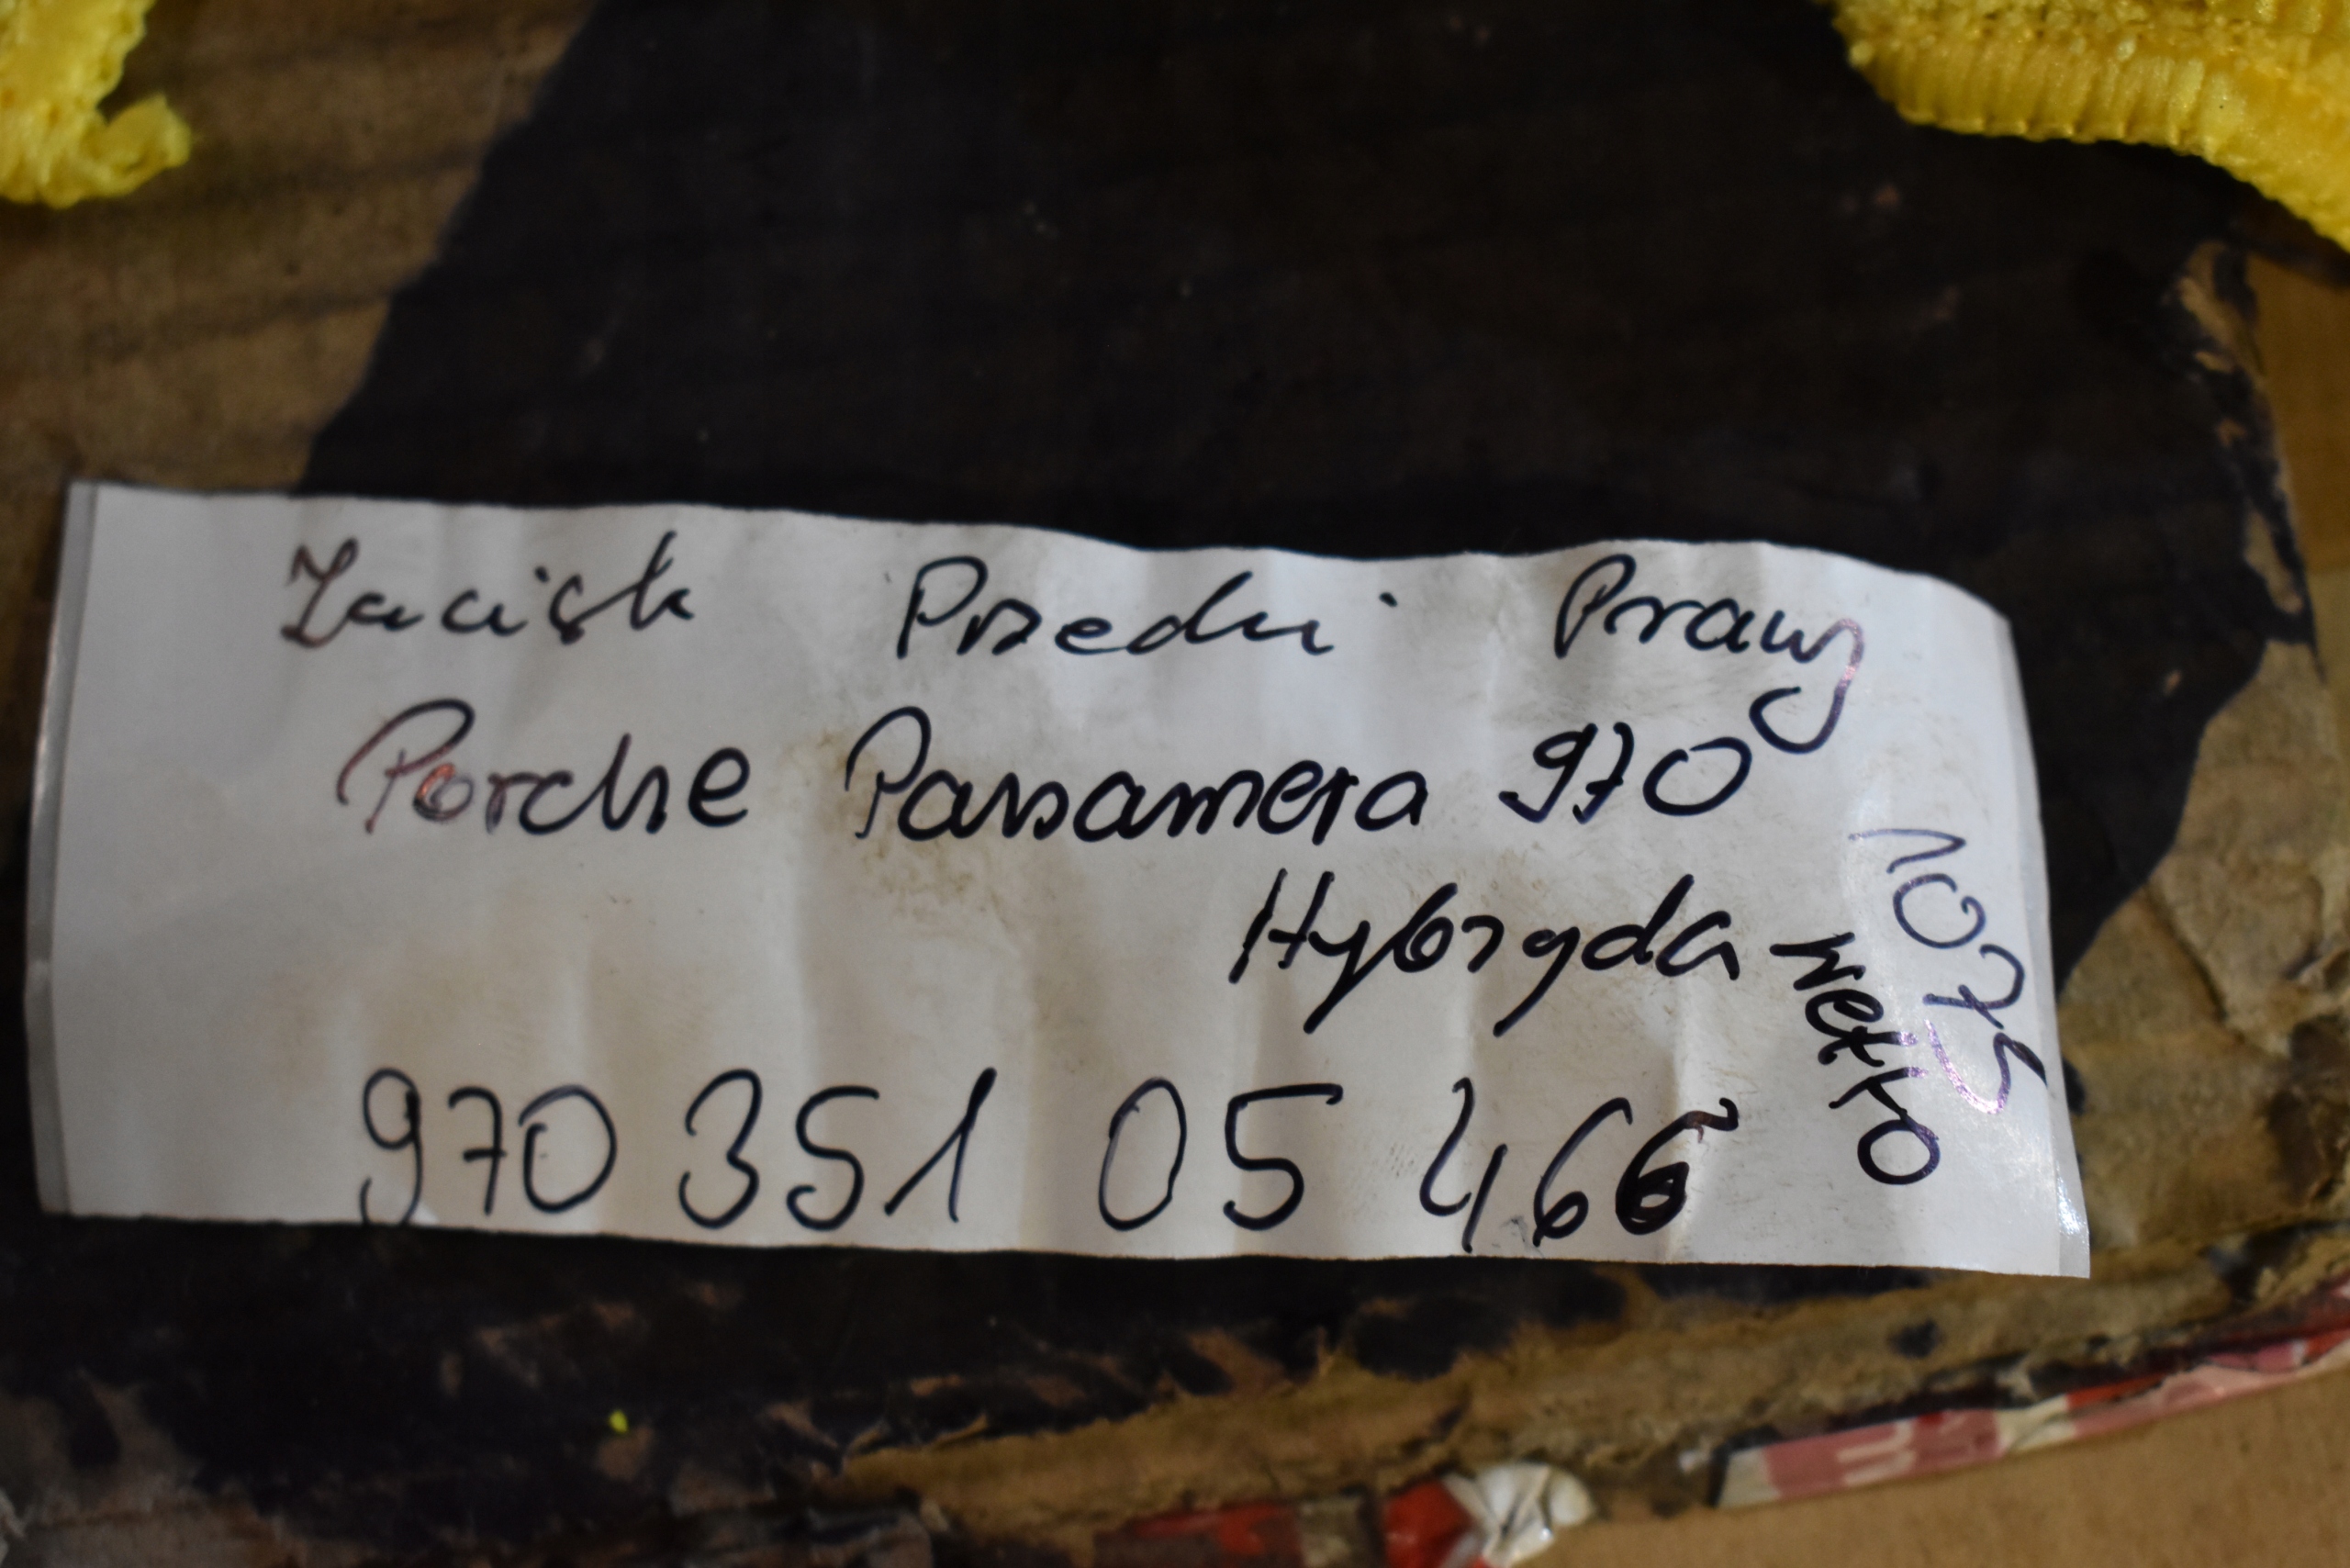 Zacisk Przedni Prawy
Porche Panamera 970
Hybryda
970 351 05 466
1075
Netto